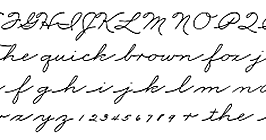 F G H I J K L M N O P Q
The quick brown fox j
f g h i j k l m n
x y z 1 2 3 4 5 6 7 8 9 + the